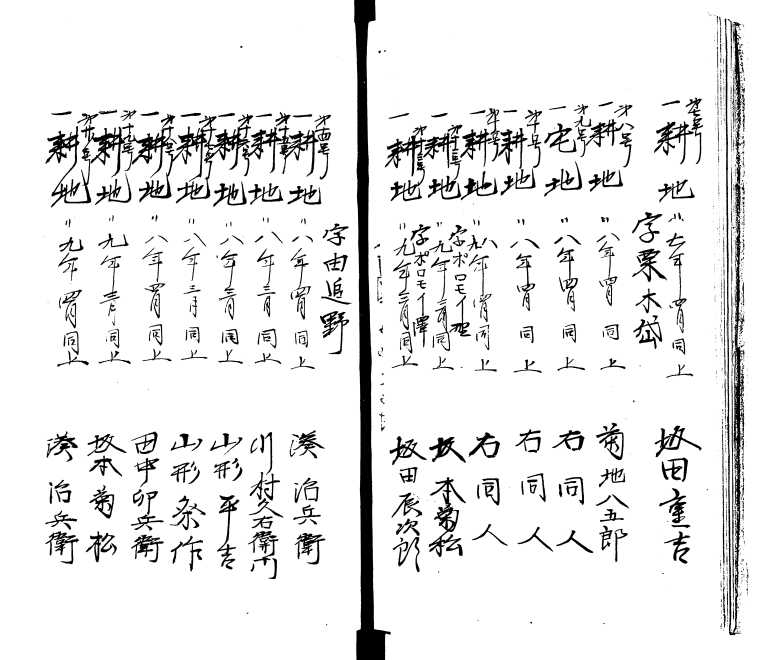 一 耕地 第七号 〃七年四月同上 坂田重吉
字栗木岱
一 耕地 第八号 〃八年四月同上 菊地八五郎
一 宅地 第九号 〃八年四月同上 右同人
一 耕地 第十号 〃八年四月同上 右同人
一 耕地 〃八年四月同上 右同人
字ポロモイ
一 耕地 〃九年三月同上 坂本菊松
字ポロモイ澤
一 耕地 〃九年三月同上 坂田辰次郎
字由追野
一 耕地 第十四号 〃八年四月同上 湊治兵衛
一 耕地 〃八年三月同上 川村久右衛門
一 耕地 〃八年三月同上 山形平吉
一 耕地 〃八年三月同上 山形祭作
一 耕地 〃八年四月同上 田中卯兵衛
一 耕地 〃九年三月同上 坂本菊松
一 耕地 〃九年四月同上 湊治兵衛